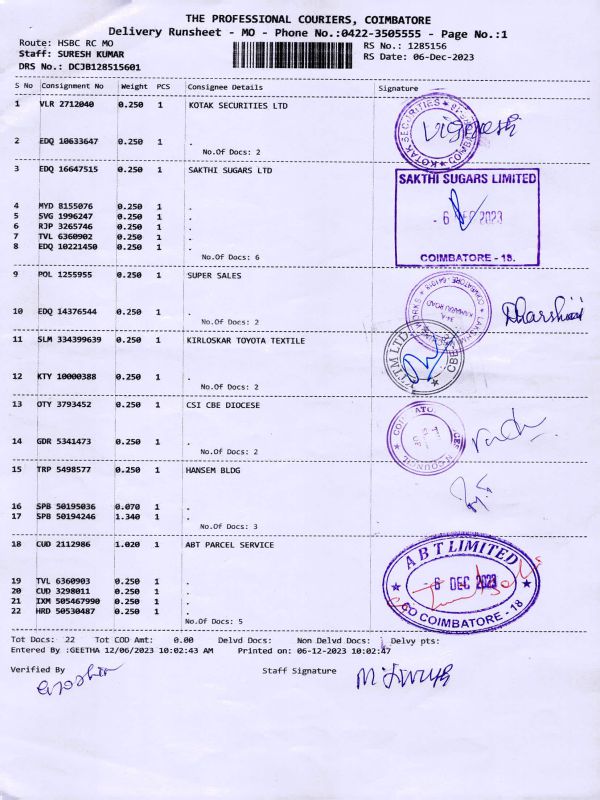 THE PROFESSIONAL COURIERS, COIMBATORE
Delivery Runsheet - MO - Phone No.:0422-3505555 - Page No.:1
Route: HSBC RC MO RS No.: 1285156
Staff: SURESH KUMAR RS Date: 06-Dec-2023
DRS No.: DCJB128515601
S No Consignment No Weight PCS Consignee Details Signature
1 VLR 2712040 0.250 1 KOTAK SECURITIES LTD
KOTAK SECURITIES
Vignesh
2 EDQ 10633647 0.250 1 .
No.Of Docs: 2
3 EDQ 16647515 0.250 1 SAKTHI SUGARS LTD
SAKTHI SUGARS LIMITED
4 MYD 8155076 0.250 1 .
5 SVG 1996247 0.250 1 .
- 6 DEC 2023
6 RJP 3265746 0.250 1 .
7 TVL 6360902 0.250 1 .
8 EDQ 10221450 0.250 1 .
No.Of Docs: 6
COIMBATORE - 18.
9 POL 1255955 0.250 1 SUPER SALES
10 EDQ 14376544 0.250 1 .
Dharshini
No.Of Docs: 2
11 SLM 334399639 0.250 1 KIRLOSKAR TOYOTA TEXTILE
12 KTY 10000388 0.250 1 .
No.Of Docs: 2
13 OTY 3793452 0.250 1 CSI CBE DIOCESE
14 GDR 5341473 0.250 1 .
No.Of Docs: 2
15 TRP 5498577 0.250 1 HANSEM BLDG
16 SPB 50195036 0.070 1 .
17 SPB 50194246 1.340 1 .
No.Of Docs: 3
18 CUD 2112986 1.020 1 ABT PARCEL SERVICE
ABT LIMITED
19 TVL 6360903 0.250 1 .
- 6 DEC 2023
20 CUD 3298011 0.250 1 .
21 IXM 505467990 0.250 1 .
22 HRD 50530487 0.250 1 .
COIMBATORE - 18
No.Of Docs: 5
Tot Docs: 22 Tot COD Amt: 0.00 Delvd Docs: Non Delvd Docs: Delvy pts:
Entered By :GEETHA 12/06/2023 10:02:43 AM Printed on: 06-12-2023 10:02:47
Verified By Staff Signature